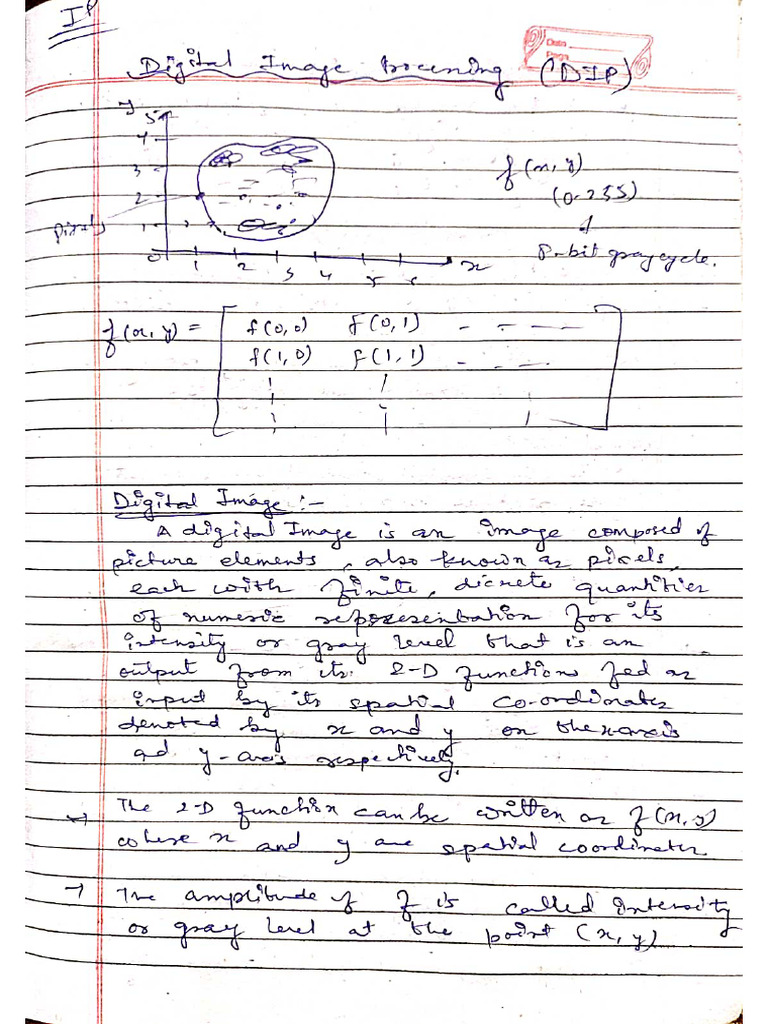 IP
Date
Page
Digital Image Processing (DIP)
y
5
4
3
2
1
0
1 2 3 4 5 6 x
pixels
f(x, y)
(0-255)
8-bit graycycle.
f(x, y) =
f(0,0) f(0,1) - - - -
f(1,0) f(1,1) - - - -
Digital Image :-
A digital Image is an image composed of
picture elements, also known as pixels,
each with finite, dicrete quantities
of numeric representation for its
intensity or gray level that is an
output from its 2-D functions fed as
input by its spatial co-ordinates
denoted by x and y on the x-axis
ad y-axis respectively.
→ The 2-D function can be written as f(x, y)
where x and y are spatial coordinates
→ The amplitude of f is called intensity
or gray level at the point (x, y)